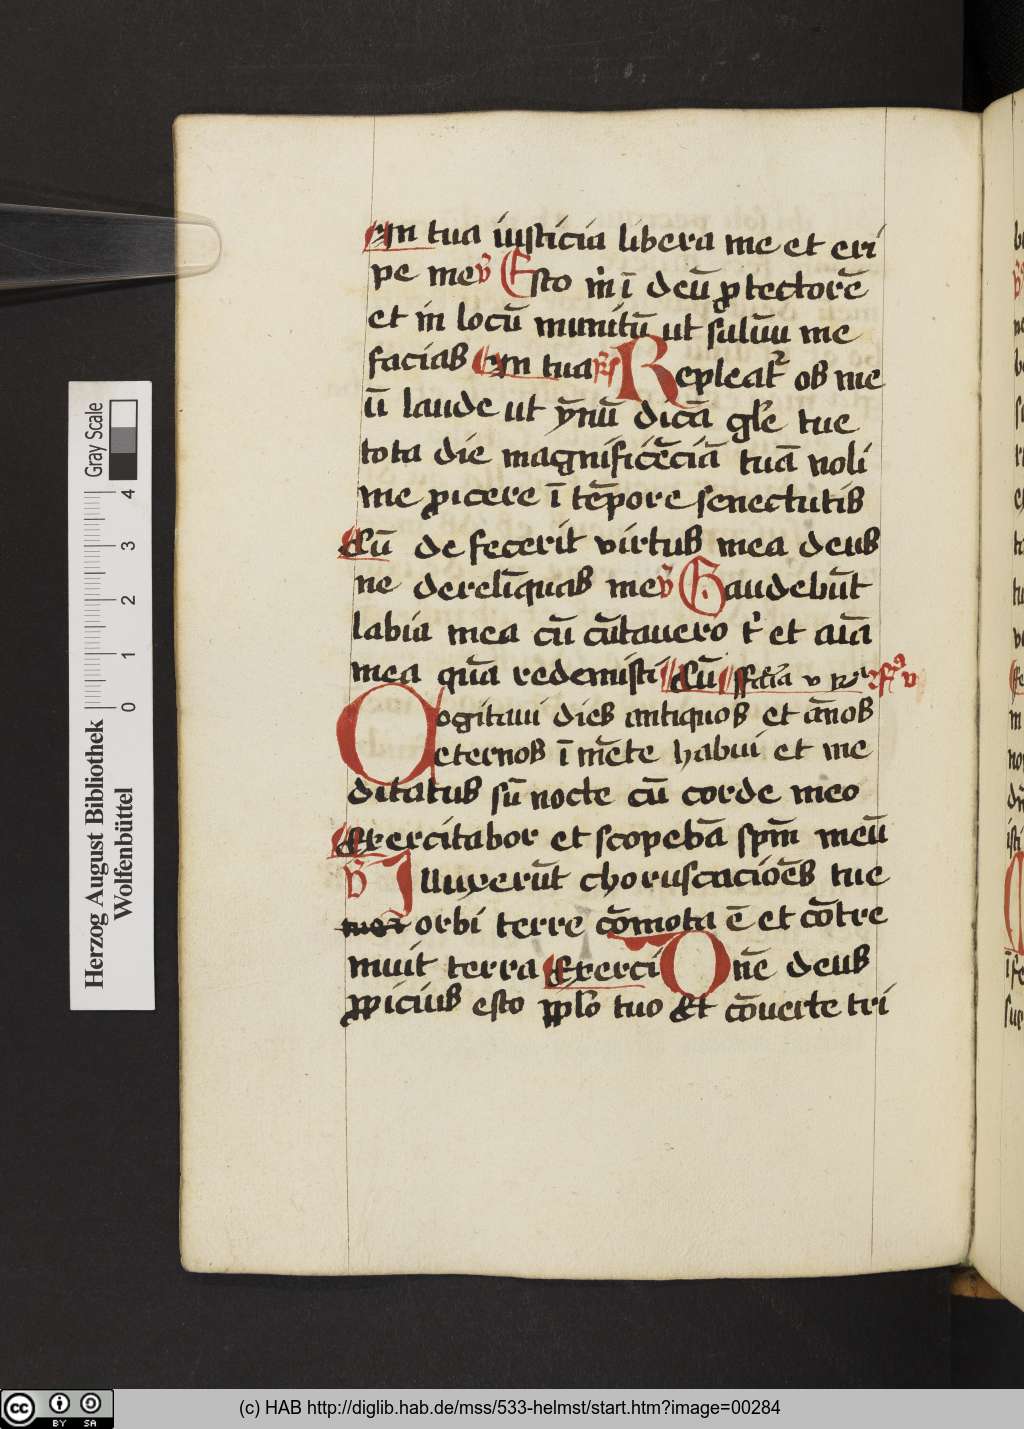 In tua iusticia libera me et eri
pe me v̄ Esto m̍ ī deū ꝓtectorē
et in locū munitū ut saluū me
facias In tua rs̄ Repleat᷑ os me
ū laude ut ẏnū dicā gl̄e tue
tota die magnificēciā tuā noli
me ꝓicere ī tēpore senectutis
Cū defecerit virtus mea deus
ne derelīquas me v̄ Gaudebūt
labia mea cū cātauero t̍ et aīa
mea quā redemisti Cū
Cogitaui dies antiquos et ānos
eternos ī mēte habui et me
ditatus sū nocte cū corde meo
Exercitabor et scopebā spm̄ meū
v̄ Illuxerūt choruscacioēs tue
orbi terre cōmota ē et cōtre
muit terra Exerci One deus
ꝓpicius esto pplō tuo Et cōuerte tri
Herzog August Bibliothek
Wolfenbüttel
0 1 2 3 4
Gray Scale
cc BY SA
(c) HAB http://diglib.hab.de/mss/533-helmst/start.htm?image=00284